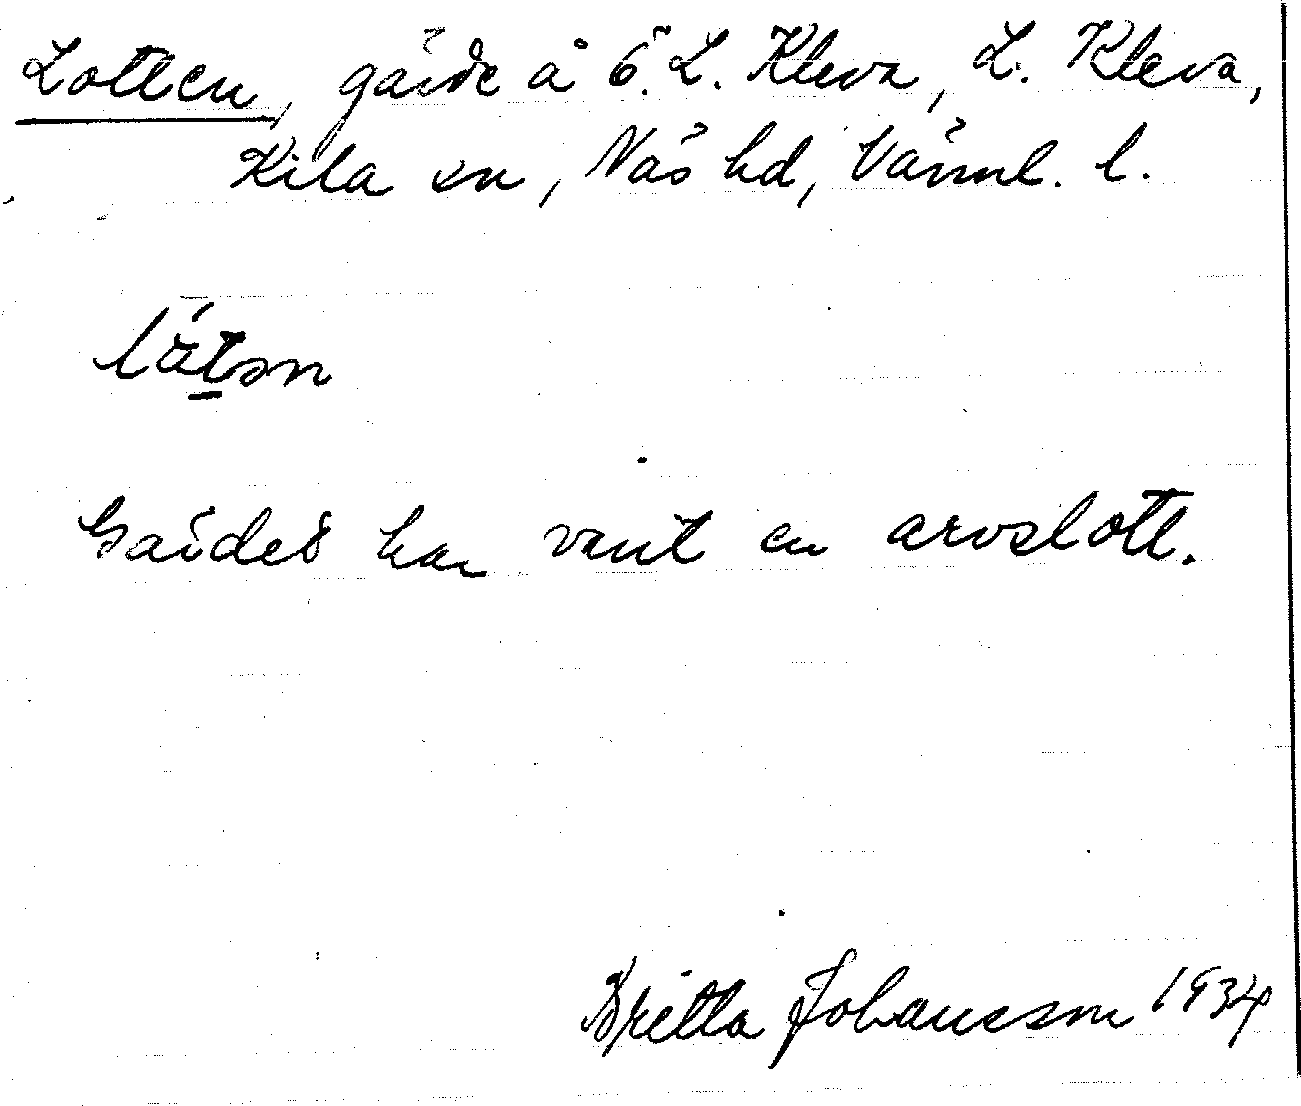 Lotten, gärde å 6. L. Kleva, L. Kleva,
Kila sn, Näs hd, Värml. l.
Gärdet har varit en arvslott.
Britta Johansson 1934